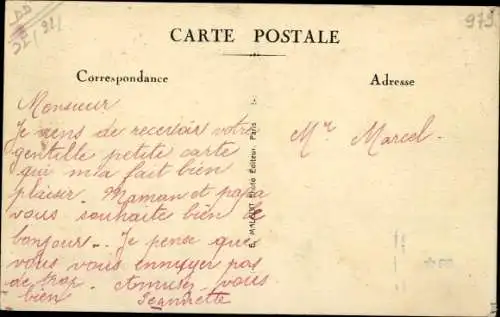 CARTE POSTALE
Correspondance
Adresse
Monsieur
Je viens de recevoir votre
gentille petite carte
qui m'a fait bien
plaisir. Maman et papa
vous souhaite bien le
bonjour.. Je pense que
vous vous ennuyer pas
de trop. Amusez-vous
bien Jeannette
Mr Marcel.
Editeur, Paris
979